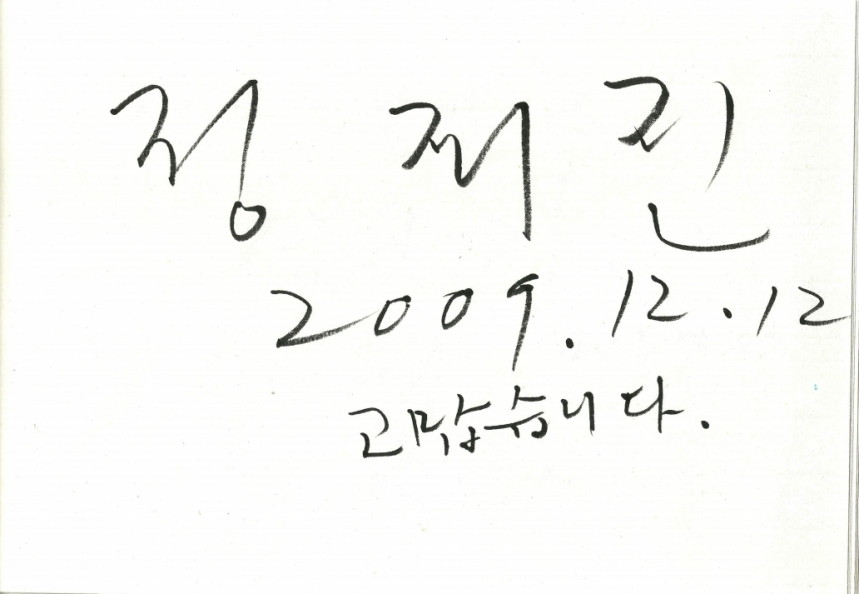 정재진
2009.12.12
고맙습니다.